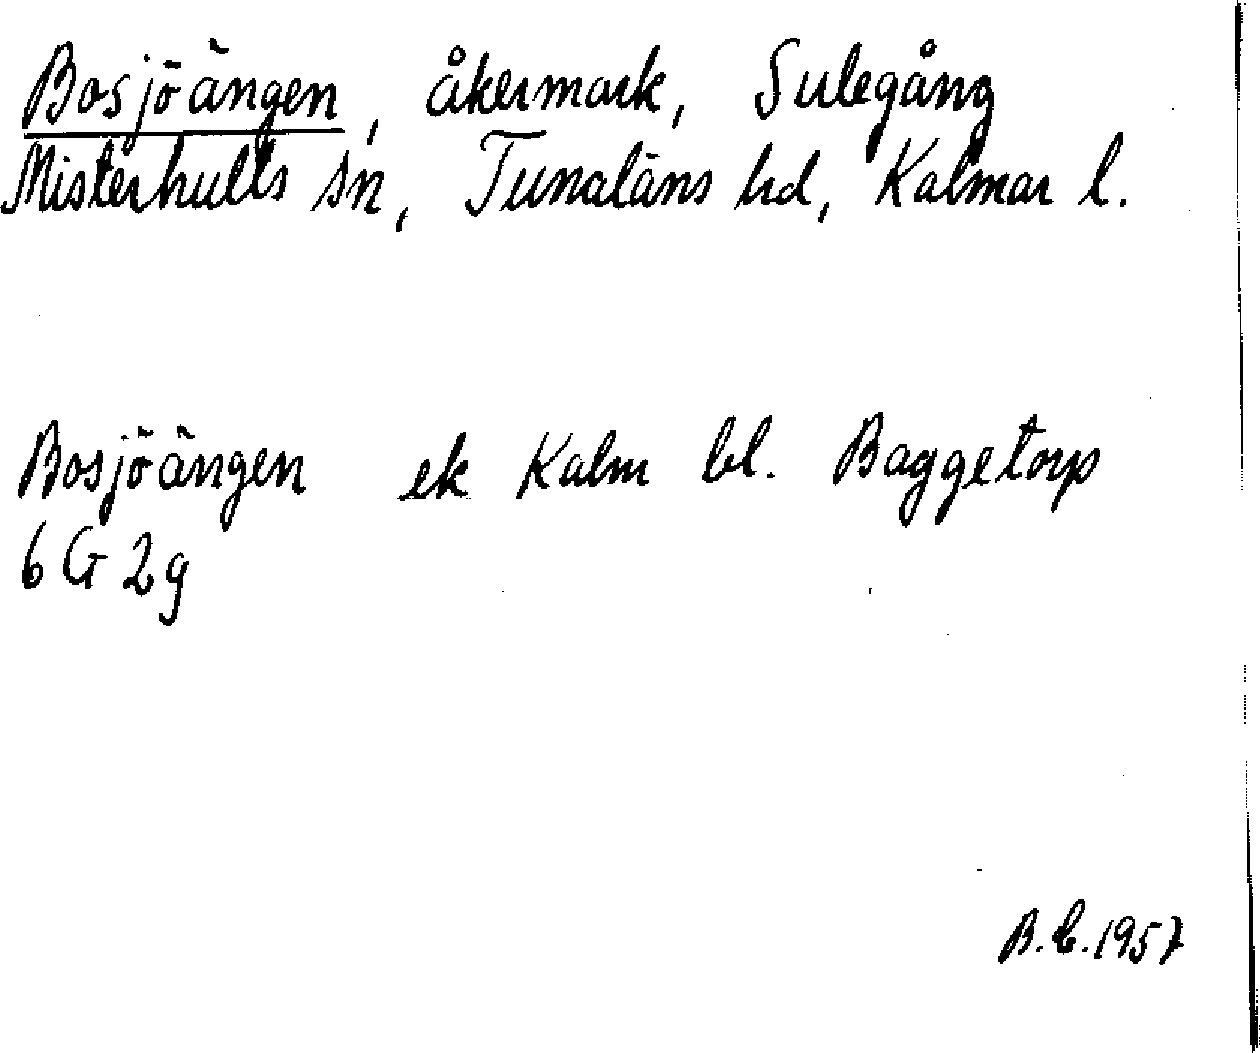 Bosjöängen, åkermark, Sulegång
Misterhults sn, Tunaläns hd, Kalmar l.
Bosjöängen ek Kalm bl. Baggetorp
6 G 2g
B.C.1957